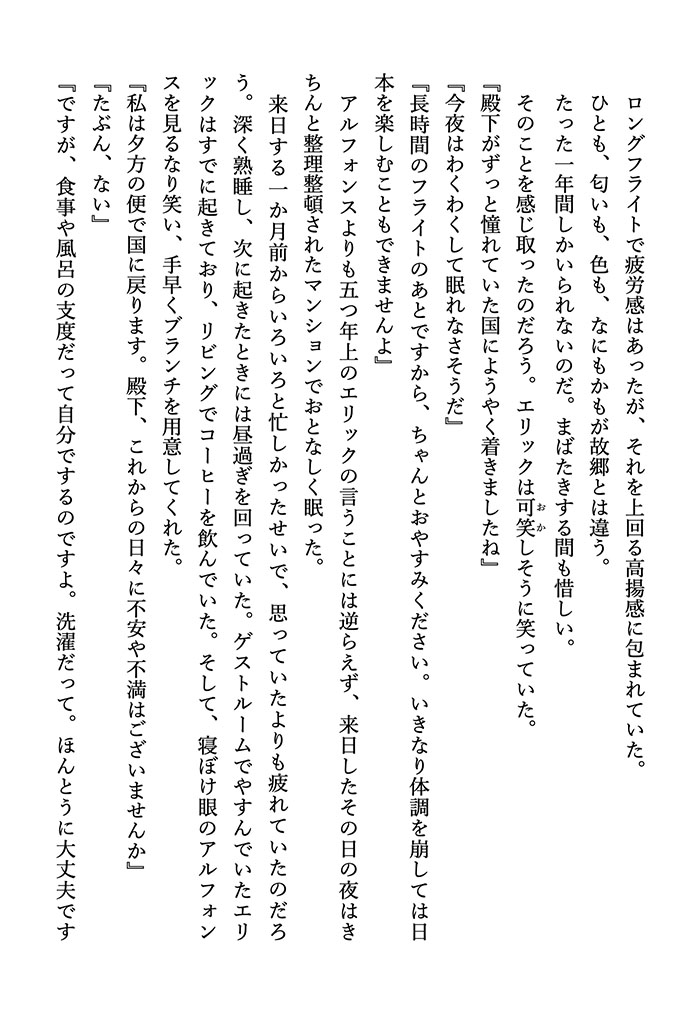 ロングフライトで疲労感はあったが、それを上回る高揚感に包まれていた。
ひとも、匂いも、色も、なにもかもが故郷とは違う。
たった一年間しかいられないのだ。まばたきする間も惜しい。
そのことを感じ取ったのだろう。エリックは可笑しそうに笑っていた。
おか
『殿下がずっと憧れていた国にようやく着きましたね』
『今夜はわくわくして眠れなさそうだ』
『長時間のフライトのあとですから、ちゃんとおやすみください。いきなり体調を崩しては日
本を楽しむこともできませんよ』
アルフォンスよりも五つ年上のエリックの言うことには逆らえず、来日したその日の夜はき
ちんと整理整頓されたマンションでおとなしく眠った。
来日する一か月前からいろいろと忙しかったせいで、思っていたよりも疲れていたのだろ
う。深く熟睡し、次に起きたときには昼過ぎを回っていた。ゲストルームでやすんでいたエリ
ックはすでに起きており、リビングでコーヒーを飲んでいた。そして、寝ぼけ眼のアルフォン
スを見るなり笑い、手早くブランチを用意してくれた。
『私は夕方の便で国に戻ります。殿下、これからの日々に不安や不満はございませんか』
『たぶん、ない』
『ですが、食事や風呂の支度だって自分でするのですよ。洗濯だって。ほんとうに大丈夫です